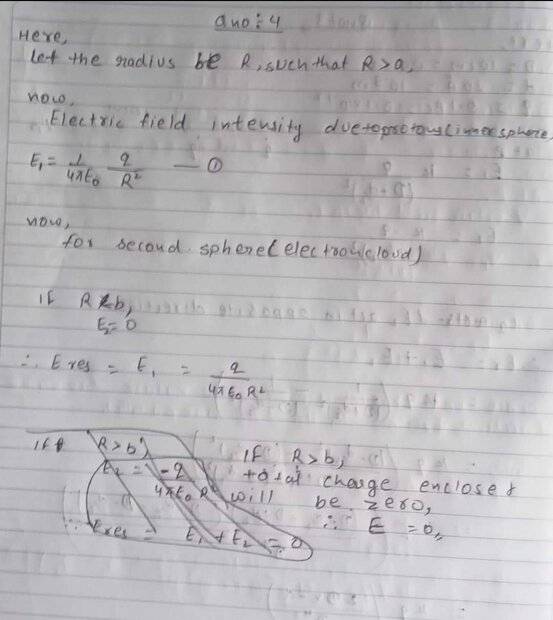 ano:4
Here,
Let the radius be R, such that R > a,
now,
Electric field intensity due to protons (inner sphere)
E₁ = 1/4πε₀ q/R² — ①
now,
for second sphere (electron cloud)
if R < b,
E₂ = 0
∴ E res = E₁ = q/4πε₀R²
if R > b,
E₂ = -q/4πε₀R²
∴ Eres = E₁ + E₂ = 0
if R > b,
total charge enclosed
will be zero,
∴ E = 0,,